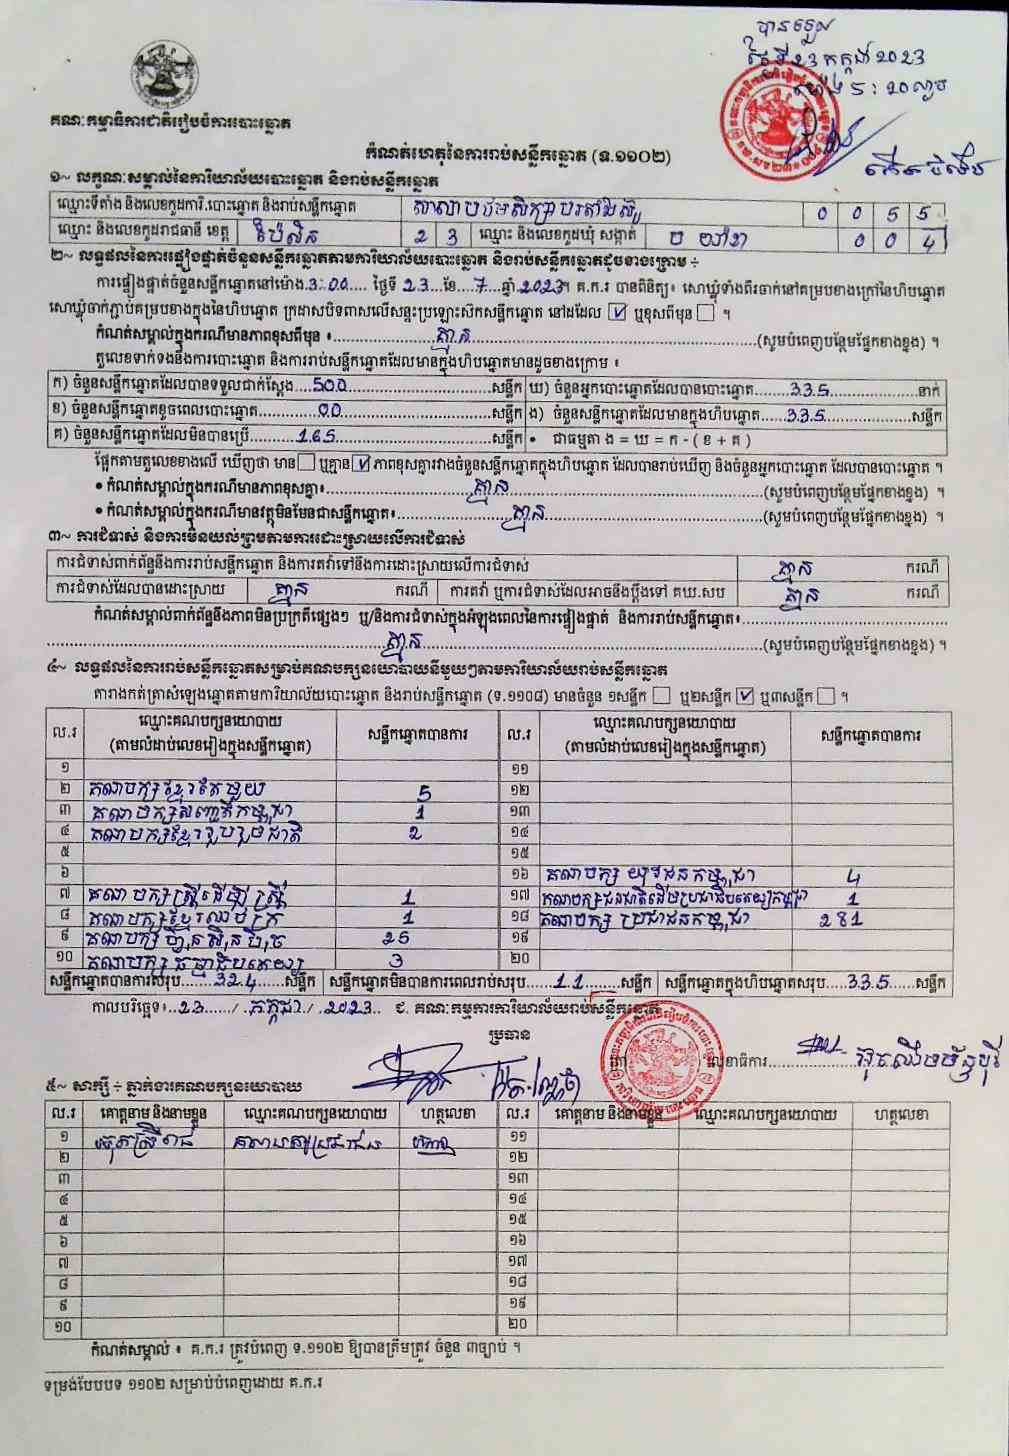 បានទទួល
ថ្ងៃទី 23 កក្កដា 2023
ម៉ោង 5 : 20 ល្ងាច
គណៈកម្មាធិការជាតិរៀបចំការបោះឆ្នោត
កំណត់ហេតុនៃការរាប់សន្លឹកឆ្នោត (ទ.១១០២)
១~ លក្ខណៈសម្គាល់នៃការិយាល័យបោះឆ្នោត និងរាប់សន្លឹកឆ្នោត
ឈ្មោះទីតាំង និងលេខកូដការិ.បោះឆ្នោត និងរាប់សន្លឹកឆ្នោត សាលាបឋមសិក្សា 0 0 5 5
ឈ្មោះ និងលេខកូដរាជធានី ខេត្ត ប៉ៃលិន 2 3 ឈ្មោះ និងលេខកូដឃុំ សង្កាត់ បយ៉ាខា 0 0 4
២~ លទ្ធផលនៃការផ្ទៀងផ្ទាត់ចំនួនសន្លឹកឆ្នោតតាមការិយាល័យបោះឆ្នោត និងរាប់សន្លឹកឆ្នោតដូចខាងក្រោម ÷
ការផ្ទៀងផ្ទាត់ចំនួនសន្លឹកឆ្នោតនៅម៉ោង 3:00 ថ្ងៃទី 23 ខែ 7 ឆ្នាំ 2023។ គ.ក.រ បានពិនិត្យ៖ សោឃ្លុំទាំងពីរចាក់នៅគម្របខាងក្រៅនៃហិបឆ្នោត
សោឃ្លុំចាក់ភ្ជាប់គម្របខាងក្នុងនៃហិបឆ្នោត ក្រដាសបិទពាសលើសន្ទះប្រឡោះសិកសន្លឹកឆ្នោត នៅដដែល ☑ ឬខុសពីមុន ☐ ។
កំណត់សម្គាល់ក្នុងករណីមានភាពខុសពីមុន ៖ គ្មាន (សូមបំពេញបន្ថែមផ្នែកខាងខ្នង) ។
តួលេខទាក់ទងនឹងការបោះឆ្នោត និងការរាប់សន្លឹកឆ្នោតដែលមានក្នុងហិបឆ្នោតមានដូចខាងក្រោម ៖
ក) ចំនួនសន្លឹកឆ្នោតដែលបានទទួលជាក់ស្តែង 500 សន្លឹក ឃ) ចំនួនអ្នកបោះឆ្នោតដែលបានបោះឆ្នោត 335 នាក់
ខ) ចំនួនសន្លឹកឆ្នោតខូចពេលបោះឆ្នោត 00 សន្លឹក ង) ចំនួនសន្លឹកឆ្នោតដែលមានក្នុងហិបឆ្នោត 335 សន្លឹក
គ) ចំនួនសន្លឹកឆ្នោតដែលមិនបានប្រើ 165 សន្លឹក • ជាធម្មតា ង = ឃ = ក - ( ខ + គ )
ផ្អែកតាមតួលេខខាងលើ ឃើញថា មាន ☐ ឬគ្មាន ☑ ភាពខុសគ្នារវាងចំនួនសន្លឹកឆ្នោតក្នុងហិបឆ្នោត ដែលបានរាប់ឃើញ និងចំនួនអ្នកបោះឆ្នោត ដែលបានបោះឆ្នោត ។
• កំណត់សម្គាល់ក្នុងករណីមានភាពខុសគ្នា៖ គ្មាន (សូមបំពេញបន្ថែមផ្នែកខាងខ្នង) ។
• កំណត់សម្គាល់ក្នុងករណីមានវត្ថុមិនមែនជាសន្លឹកឆ្នោត៖ គ្មាន (សូមបំពេញបន្ថែមផ្នែកខាងខ្នង) ។
៣~ ការជំទាស់ និងការមិនយល់ព្រមតាមការដោះស្រាយលើការជំទាស់
ការជំទាស់ពាក់ព័ន្ធនឹងការរាប់សន្លឹកឆ្នោត និងការតវ៉ាទៅនឹងការដោះស្រាយលើការជំទាស់ គ្មាន ករណី
ការជំទាស់ដែលបានដោះស្រាយ គ្មាន ករណី ការតវ៉ា ឬការជំទាស់ដែលអាចនឹងប្តឹងទៅ គឃ.សប គ្មាន ករណី
កំណត់សម្គាល់ពាក់ព័ន្ធនឹងភាពមិនប្រក្រតីផ្សេងៗ ឬ/និងការជំទាស់ក្នុងអំឡុងពេលនៃការផ្ទៀងផ្ទាត់ និងការរាប់សន្លឹកឆ្នោត៖
គ្មាន (សូមបំពេញបន្ថែមផ្នែកខាងខ្នង) ។
៤~ លទ្ធផលនៃការរាប់សន្លឹកឆ្នោតសម្រាប់គណបក្សនយោបាយនីមួយៗតាមការិយាល័យរាប់សន្លឹកឆ្នោត
តារាងកត់ត្រាសំឡេងឆ្នោតតាមការិយាល័យបោះឆ្នោត និងរាប់សន្លឹកឆ្នោត (ទ.១១០៨) មានចំនួន ១សន្លឹក ☐ ឬ២សន្លឹក ☑ ឬ៣សន្លឹក ☐ ។
ល.រ ឈ្មោះគណបក្សនយោបាយ (តាមលំដាប់លេខរៀងក្នុងសន្លឹកឆ្នោត) សន្លឹកឆ្នោតបានការ ល.រ ឈ្មោះគណបក្សនយោបាយ (តាមលំដាប់លេខរៀងក្នុងសន្លឹកឆ្នោត) សន្លឹកឆ្នោតបានការ
១ ១១
២ គណបក្សខ្មែរតែមួយ 5 ១២
៣ គណបក្សសញ្ជាតិកម្ពុជា 1 ១៣
៤ គណបក្សខ្មែររួបរួមជាតិ 2 ១៤
៥ ១៥
៦ ១៦ គណបក្ស យុវជនកម្ពុជា 4
៧ គណបក្សស្ត្រីដើម្បីស្ត្រី 1 ១៧ គណបក្សជនជាតិដើមប្រជាធិបតេយ្យកម្ពុជា 1
៨ គណបក្សខ្មែរឈប់ក្រ 1 ១៨ គណបក្ស ប្រជាជនកម្ពុជា 281
៩ គណបក្សហ្វ៊ុនស៊ិនប៉ិច 25 ១៩
១០ គណបក្ស ធម្មាធិបតេយ្យ 3 ២០
សន្លឹកឆ្នោតបានការសរុប 324 សន្លឹក សន្លឹកឆ្នោតមិនបានការពេលរាប់សរុប 11 សន្លឹក សន្លឹកឆ្នោតក្នុងហិបឆ្នោតសរុប 335 សន្លឹក
កាលបរិច្ឆេទ៖ 23 / កក្កដា / 2023 ជ. គណៈកម្មការការិយាល័យរាប់សន្លឹកឆ្នោត
ប្រធាន
លេខាធិការ
៥~ សាក្សី ÷ ភ្នាក់ងារគណបក្សនយោបាយ
ល.រ គោត្តនាម និងនាមខ្លួន ឈ្មោះគណបក្សនយោបាយ ហត្ថលេខា ល.រ គោត្តនាម និងនាមខ្លួន ឈ្មោះគណបក្សនយោបាយ ហត្ថលេខា
១ គណបក្សប្រជាជន ១១
២ ១២
៣ ១៣
៤ ១៤
៥ ១៥
៦ ១៦
៧ ១៧
៨ ១៨
៩ ១៩
១០ ២០
កំណត់សម្គាល់ ៖ គ.ក.រ ត្រូវបំពេញ ទ.១១០២ ឱ្យបានត្រឹមត្រូវ ចំនួន ៣ច្បាប់ ។
ទម្រង់បែបបទ ១១០២ សម្រាប់បំពេញដោយ គ.ក.រ